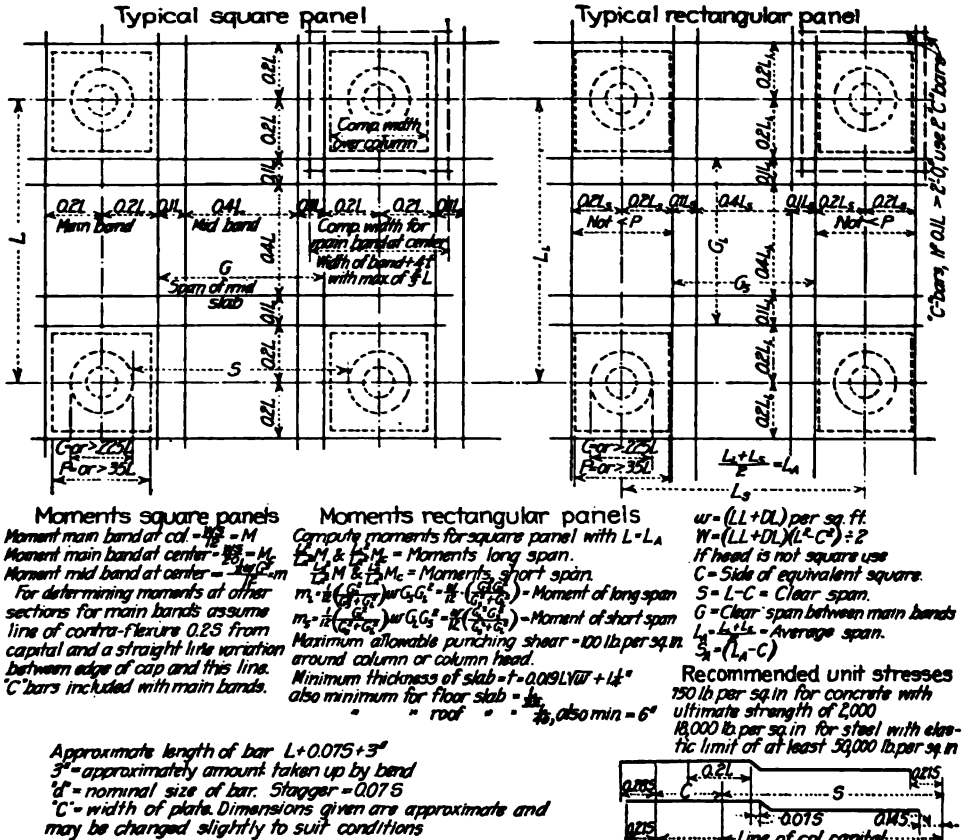 Typical square panel
Typical rectangular panel
0.2L
0.2L
0.1L
Comp. width
over column
0.2L 0.2L 0.1L 0.4L 0.1L 0.2L 0.2L 0.1L
Main band Mid band
Comp. width for
main band at center
Width of band + 4t
with max. of L
G
Span of mid
slab
0.4L
0.1L
0.2L
0.2L
L
S
C= or > .225L
P= or > .35L
0.2L
0.2L
0.1L
0.2Ls 0.2Ls 0.1Ls 0.4Ls 0.1Ls 0.2Ls 0.2Ls
Not < P
Not < P
GL
Gs
0.4L
0.1L
0.2L
0.2L
LL
"C"-bars, If 0.1L > 2'-0," use 2 "C" bars
C= or > .225L
P= or > .35L
LL + Ls / 2 = LA
Ls
Moments square panels
Moment main band at col. = WS/12 = M
Moment main band at center = WS/20 = Mc
Moment mid band at center = = m
For determining moments at other
sections for main bands assume
line of contra-flexure 0.2S from
capital and a straight line variation
between edge of cap and this line.
"C" bars included with main bands.
Moments rectangular panels
Compute moments for square panel with L = LA
= Moments long span.
= Moments short span.
= Moment of long span
= Moment of short span
Maximum allowable punching shear = 100 lb. per sq. in.
around column or column head.
Minimum thickness of slab = t = 0.019L√w + 1½"
also minimum for floor slab =
" " roof " = , also min = 6"
w = (LL+DL) per sq. ft.
W = (LL+DL)(L²-C²) ÷ 2
If head is not square use
C = Side of equivalent square.
S = L-C = Clear span.
G = Clear span between main bands
LA = LL + Ls / 2 = Average span.
SA = (LA-C)
Recommended unit stresses
750 lb per sq. in for concrete with
ultimate strength of 2,000
18,000 lb. per sq. in for steel with elas-
tic limit of at least 50,000 lb. per sq in
Approximate length of bar L+0.07S+3"
3" = approximately amount taken up by bend
"d" = nominal size of bar. Stagger = 0.07S
"C" = width of plate. Dimensions given are approximate and
may be changed slightly to suit conditions
0.2L
0.21S
C S
0.01S 0.14S
0.21S
Line of col. capital